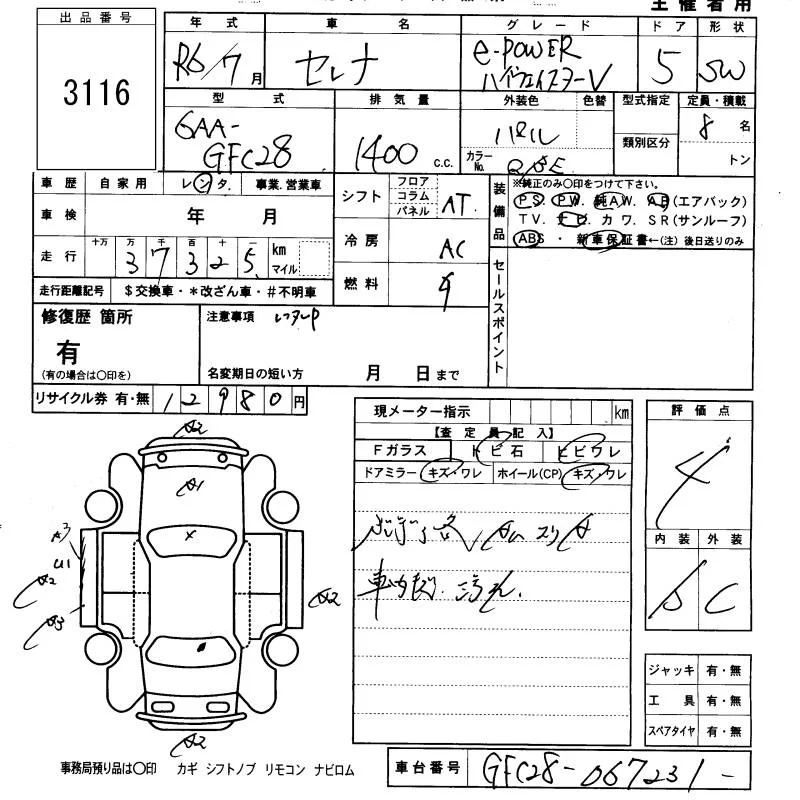 主催者用
出品番号
3116
年式 車名 グレード ドア 形状
R6/7月 セレナ e-POWER ハイウェイスターV 5 SW
型式 排気量 外装色 色替 型式指定 定員・積載
6AA-GFC28 1400 c.c. パール カラーNo. 類別区分 8名
トン
車歴 自家用 レンタ. 事業.営業車
車検 年 月
走行 十万 万 千 百 十 一 km マイル
37325
走行距離記号 $交換車・*改ざん車・#不明車
シフト フロア コラム パネル AT
冷房 AC
燃料
装備品
※純正のみ〇印をつけて下さい。
PS PW. 純AW. AB(エアバック)
TV. ナビ. カワ. SR(サンルーフ)
ABS・新車保証書←(注)後日送りのみ
セールスポイント
修復歴 箇所
有
(有の場合は〇印を)
注意事項 レンタUP
名変期日の短い方 月 日まで
リサイクル券 有・無 12980円
現メーター指示 km
【査定員記入】
Fガラス トビ石 ヒビワレ
ドアミラー キズ・ワレ ホイール(CP) キズ・ワレ
車内 汚れ.
評価点
4
内装 外装
C
ジャッキ 有・無
工具 有・無
スペアタイヤ 有・無
A2
A1
A3
U1
A2
A3
A2
A2
事務局預り品は〇印 カギ シフトノブ リモコン ナビロム
車台番号 GFC28-067231-